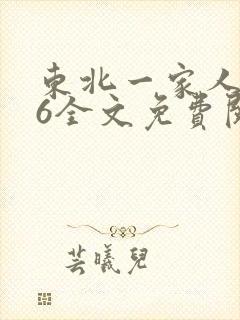 東北一家人
6全文免費閱
芸曦兒